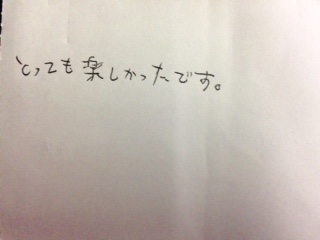 とっても楽しかったです。